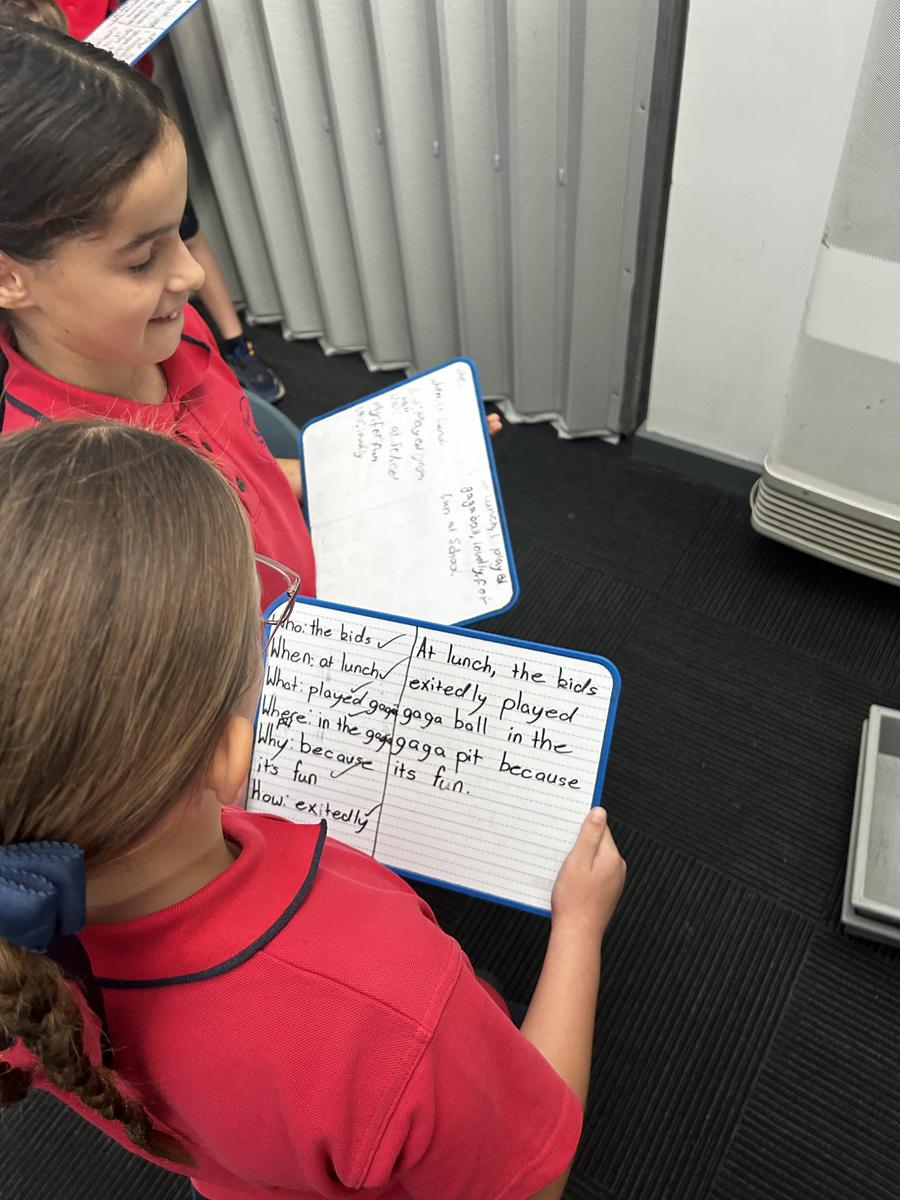 Who: the kids ✓
When: at lunch ✓
What: played gaga ✓
Where: in the gaga ✓
pit
Why: because ✓
its fun
How: exitedly ✓
At lunch, the kids
exitedly played
gaga ball in the
gaga pit because
its fun.
lunch
Played
at School
for fun
lunch, I played
gaga ball, loudly, for
fun at School.